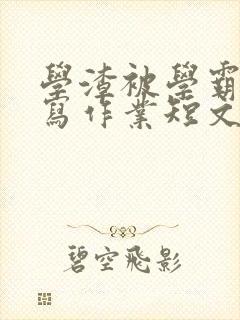 學渣被學霸
寫作業短文
碧空飛影